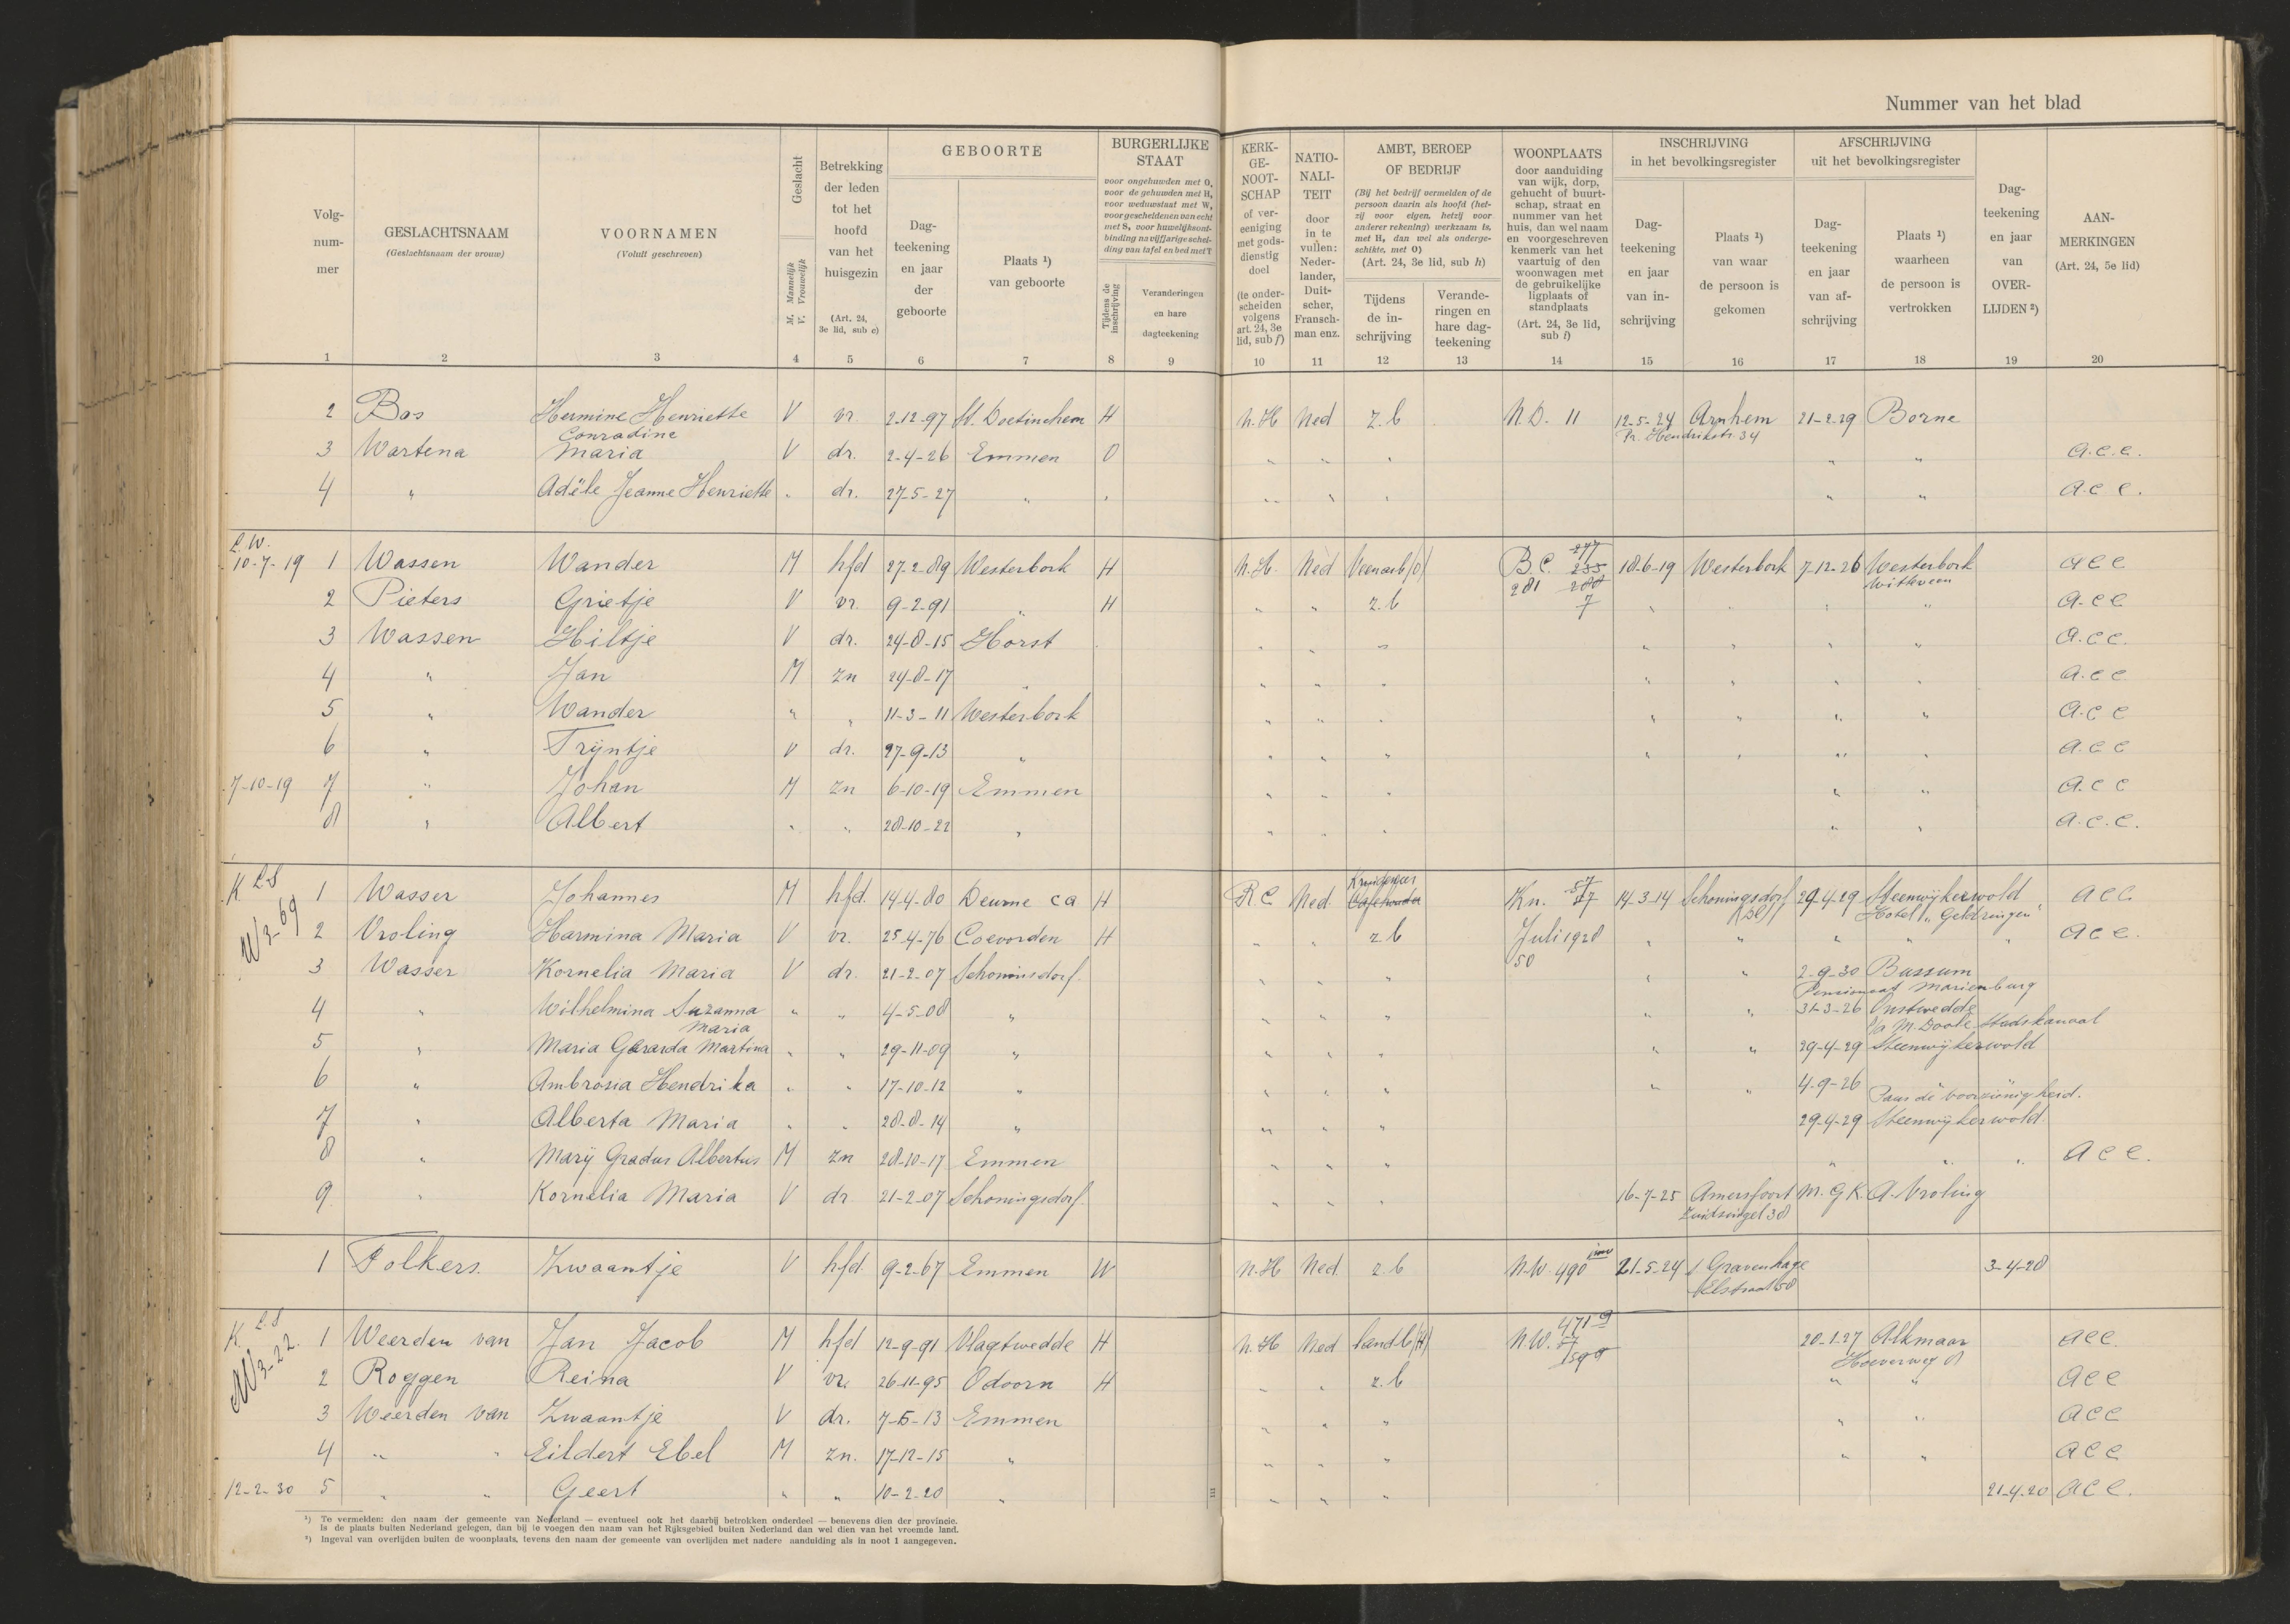 Nummer van het blad
Volg-
num-
mer
GESLACHTSNAAM
(Geslachtsnaam der vrouw)
VOORNAMEN
(Voluit geschreven)
Geslacht
M. Mannelijk
V. Vrouwelijk
Betrekking
der leden
tot het
hoofd
van het
huisgezin
(Art. 24,
3e lid, sub c)
GEBOORTE
Dag-
teekening
en jaar
der
geboorte
Plaats ¹)
van geboorte
BURGERLIJKE
STAAT
voor ongehuwden met O,
voor de gehuwden met H,
voor weduwstaat met W,
voor gescheidenen van echt
met S, voor huwelijksont-
binding na vijfjarige schei-
ding van tafel en bed met T
Tijdens de
inschrijving
Veranderingen
en hare
dagteekening
KERK-
GE-
NOOT-
SCHAP
of ver-
eeniging
met gods-
dienstig
doel
(te onder-
scheiden
volgens
art. 24, 3e
lid, sub f)
NATIO-
NALI-
TEIT
door
in te
vullen:
Neder-
lander,
Duit-
scher,
Fransch-
man enz.
AMBT, BEROEP
OF BEDRIJF
(Bij het bedrijf vermelden of de
persoon daarin als hoofd (het-
zij voor eigen, hetzij voor
anderer rekening) werkzaam is,
met H, dan wel als onderge-
schikte, met O)
(Art. 24, 3e lid, sub h)
Tijdens
de in-
schrijving
Verande-
ringen en
hare dag-
teekening
WOONPLAATS
door aanduiding
van wijk, dorp,
gehucht of buurt-
schap, straat en
nummer van het
huis, dan wel naam
en voorgeschreven
kenmerk van het
vaartuig of den
woonwagen met
de gebruikelijke
ligplaats of
standplaats
(Art. 24, 3e lid,
sub i)
INSCHRIJVING
in het bevolkingsregister
Dag-
teekening
en jaar
van in-
schrijving
Plaats ¹)
van waar
de persoon is
gekomen
AFSCHRIJVING
uit het bevolkingsregister
Dag-
teekening
en jaar
van af-
schrijving
Plaats ¹)
waarheen
de persoon is
vertrokken
Dag-
teekening
en jaar
van
OVER-
LIJDEN ²)
AAN-
MERKINGEN
(Art. 24, 5e lid)
1 2 3 4 5 6 7 8 9 10 11 12 13 14 15 16 17 18 19 20
2 Bos Hermine Henriette V vr. 2-12-97 St. Doetinchem H N.H Ned z.b N.D. 11 12-5-24 Arnhem 21-2-29 Borne
Conradine Pr. Hendrikstr. 34
3 Wartena Maria V dr. 2-4-26 Emmen O " " " " " a.c.c.
4 " Adële Jeanne Henriette " dr. 27-5-27 " " " " " " " a.c.c.
L.W.
10-7-19 1 Wassen Wander M hfd 27-2-89 Westerbork H N.H. Ned Veenarb (O) B.C. 277 255 288 281 7 18-6-19 Westerbork 7-12-26 Westerbork acc
Witteveen
2 Pieters Grietje V vr. 9-2-91 " H " " z.b " " " " a.cc
3 Wassen Hiltje V dr. 24-8-15 Horst " " " " " " " a.cc.
4 " Jan M zn 24-8-17 " " " " " " " " a.cc
5 " Wander " " 11-3-11 Westerbork " " " " " " " a.cc
6 " Trijntje V dr. 27-9-13 " " " " " " " " a.cc
7-10-19 7 " Johan M zn 6-10-19 Emmen " " " " " a.cc
8 " Albert " " 28-10-22 " " " " " " a.c.c.
K LS
W3-69
1 Wasser Johannes M hfd. 14-4-80 Deurne ca H R.C Ned. Kruidenier Caféhouder Kn. 57 14-3-14 Schoningsdorf 29-4-29 Steenwijkerwold acc
Hotel "Geldringen"
2 Vroling Harmina Maria V vr. 25-4-76 Coevorden H " " z.b Juli 1928 " " " " " acc.
50
3 Wasser Kornelia Maria V dr. 21-2-07 Schoninsdorf. " " " " " 2-9-30 Bussum
Pensionaat Marienburg
4 " Wilhelmina Suzanna " " 4-5-08 " " " " " " 31-3-26 Onstwedde
Maria Stadskanaal
5 " Maria Gerarda Martina " " 29-11-09 " " " " " " 29-4-29 Steenwijkerwold
6 " Ambrosia Hendrika " " 17-10-12 " " " " " " 4-9-26
voorzienigheid.
7 " Alberta Maria " " 28-8-14 " " " " 29-4-29 Steenwijkerwold
8 " Marij Gradus Albertus M zn 28-10-17 Emmen " " " " " " acc.
9 " Kornelia Maria V dr 21-2-07 Schoningsdorf. " " " 16-7-25 Amersfoort M.G.K. A. Vroling
Zuidsingel 38
1 Folkers. Zwaantje V hfd. 9-2-67 Emmen W N.H Ned. z.b N.W. 490 21-5-24 's Gravenhage 3-4-28
K. LS
W3-22.
1 Weerden van Jan Jacob M hfd 12-9-91 Vlagtwedde H N.H Ned Landb (H) N.W. 471 g 20-1-27 Alkmaar acc.
Hoeverweg 8
2 Roggen Reina V vr. 26-11-95 Odoorn H " " z.b " " acc
3 Weerden van Zwaantje V dr. 7-5-13 Emmen " " " " " acc
4 " " Eildert Ebel M zn. 17-12-15 " " " " " " acc
12-2-30 5 " " Geert " " 10-2-20 " " " " 21-4-20 acc.
¹) Te vermelden: den naam der gemeente van Nederland — eventueel ook het daarbij betrokken onderdeel — benevens dien der provincie.
Is de plaats buiten Nederland gelegen, dan bij te voegen den naam van het Rijksgebied buiten Nederland dan wel dien van het vreemde land.
²) Ingeval van overlijden buiten de woonplaats, tevens den naam der gemeente van overlijden met nadere aanduiding als in noot 1 aangegeven.